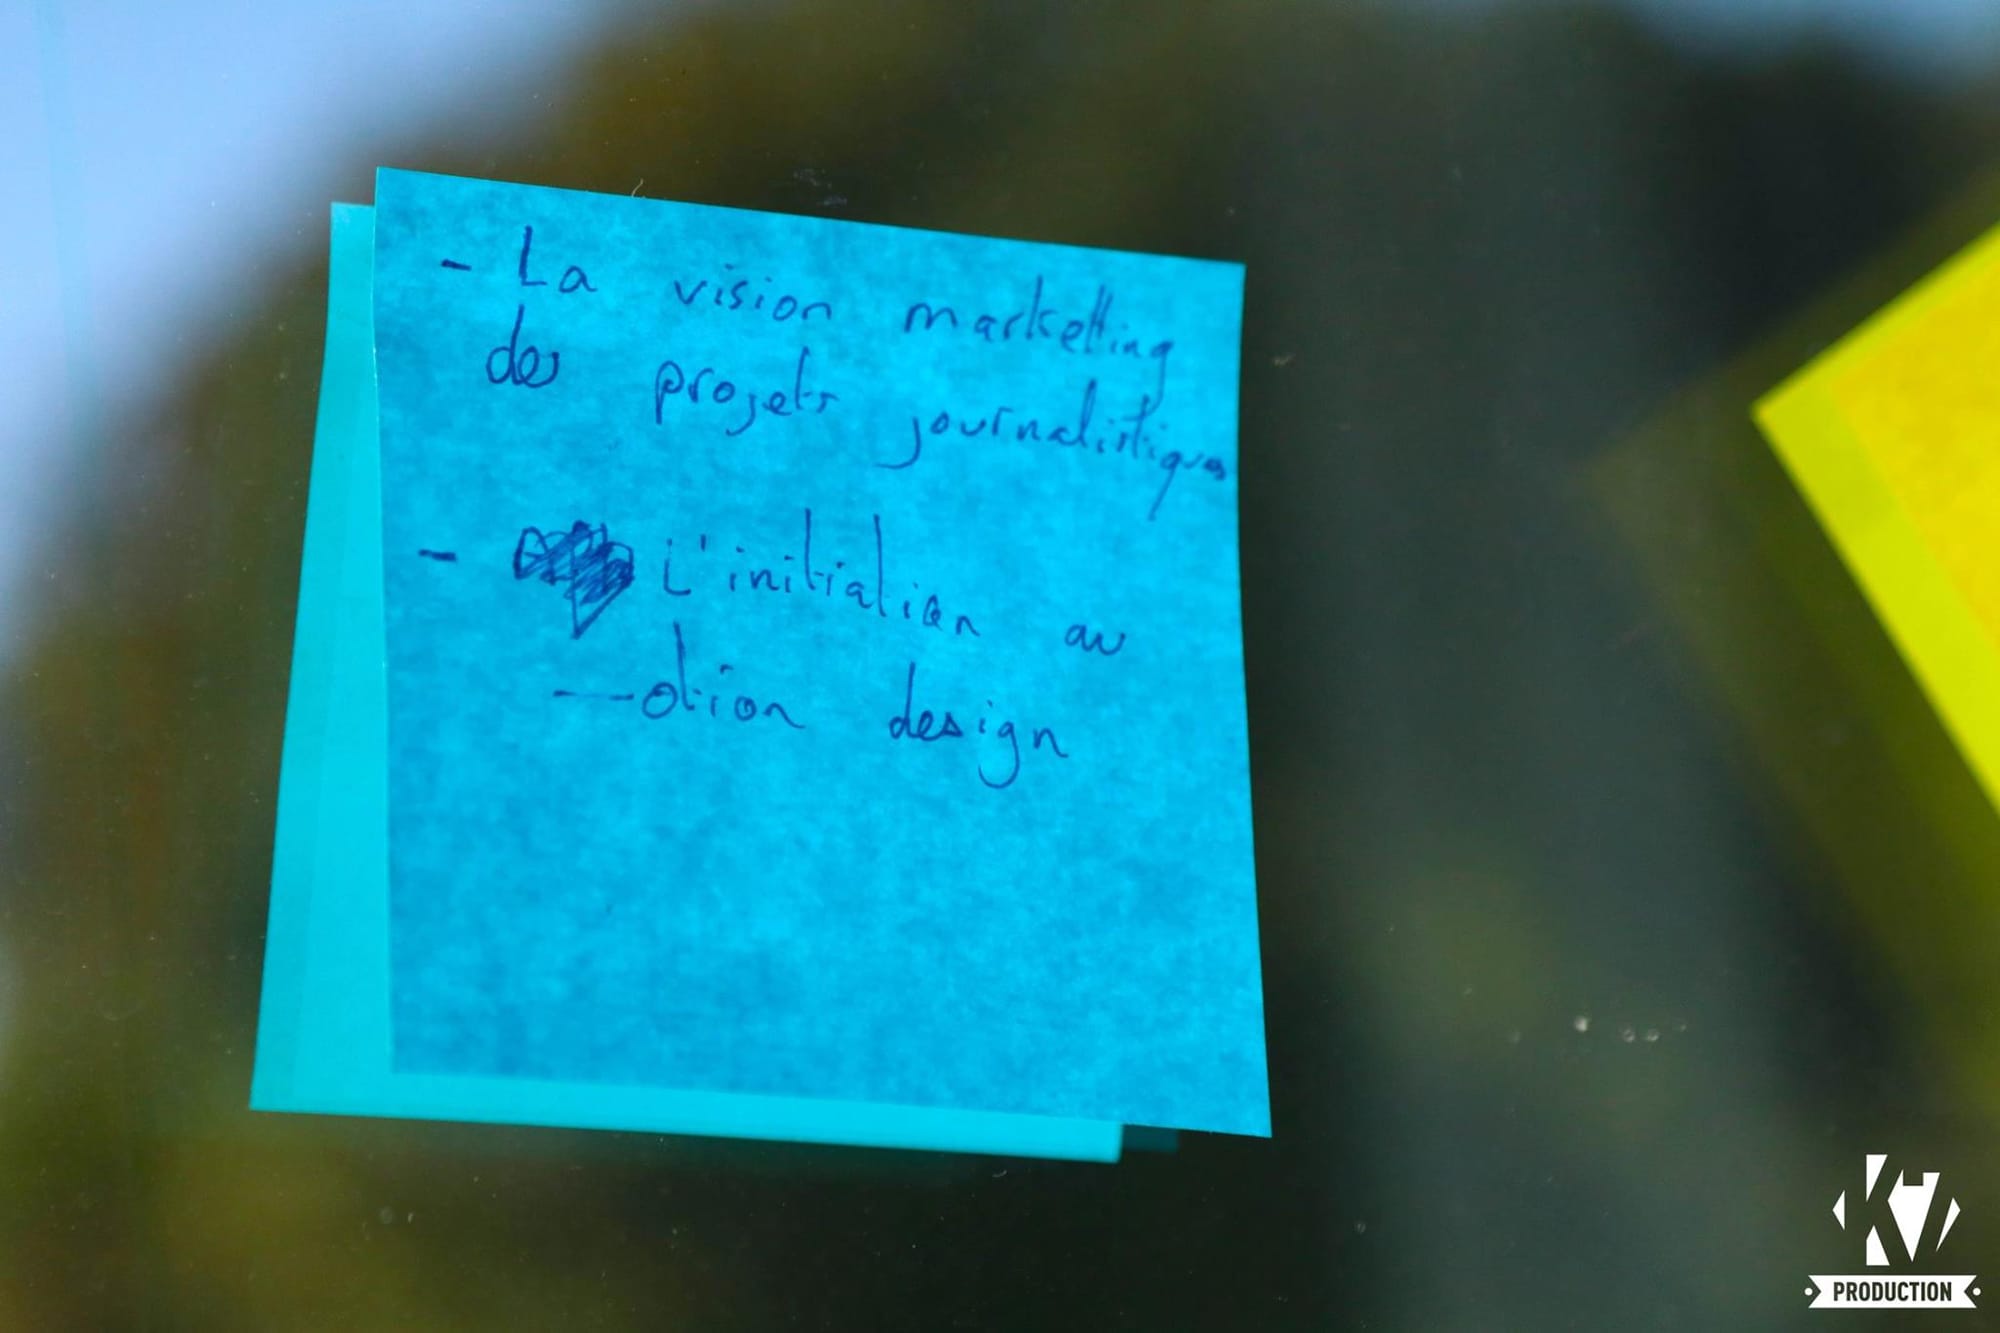 - La vision marketting
des projets journalistiques
- L'initiation au
motion design
K7
PRODUCTION